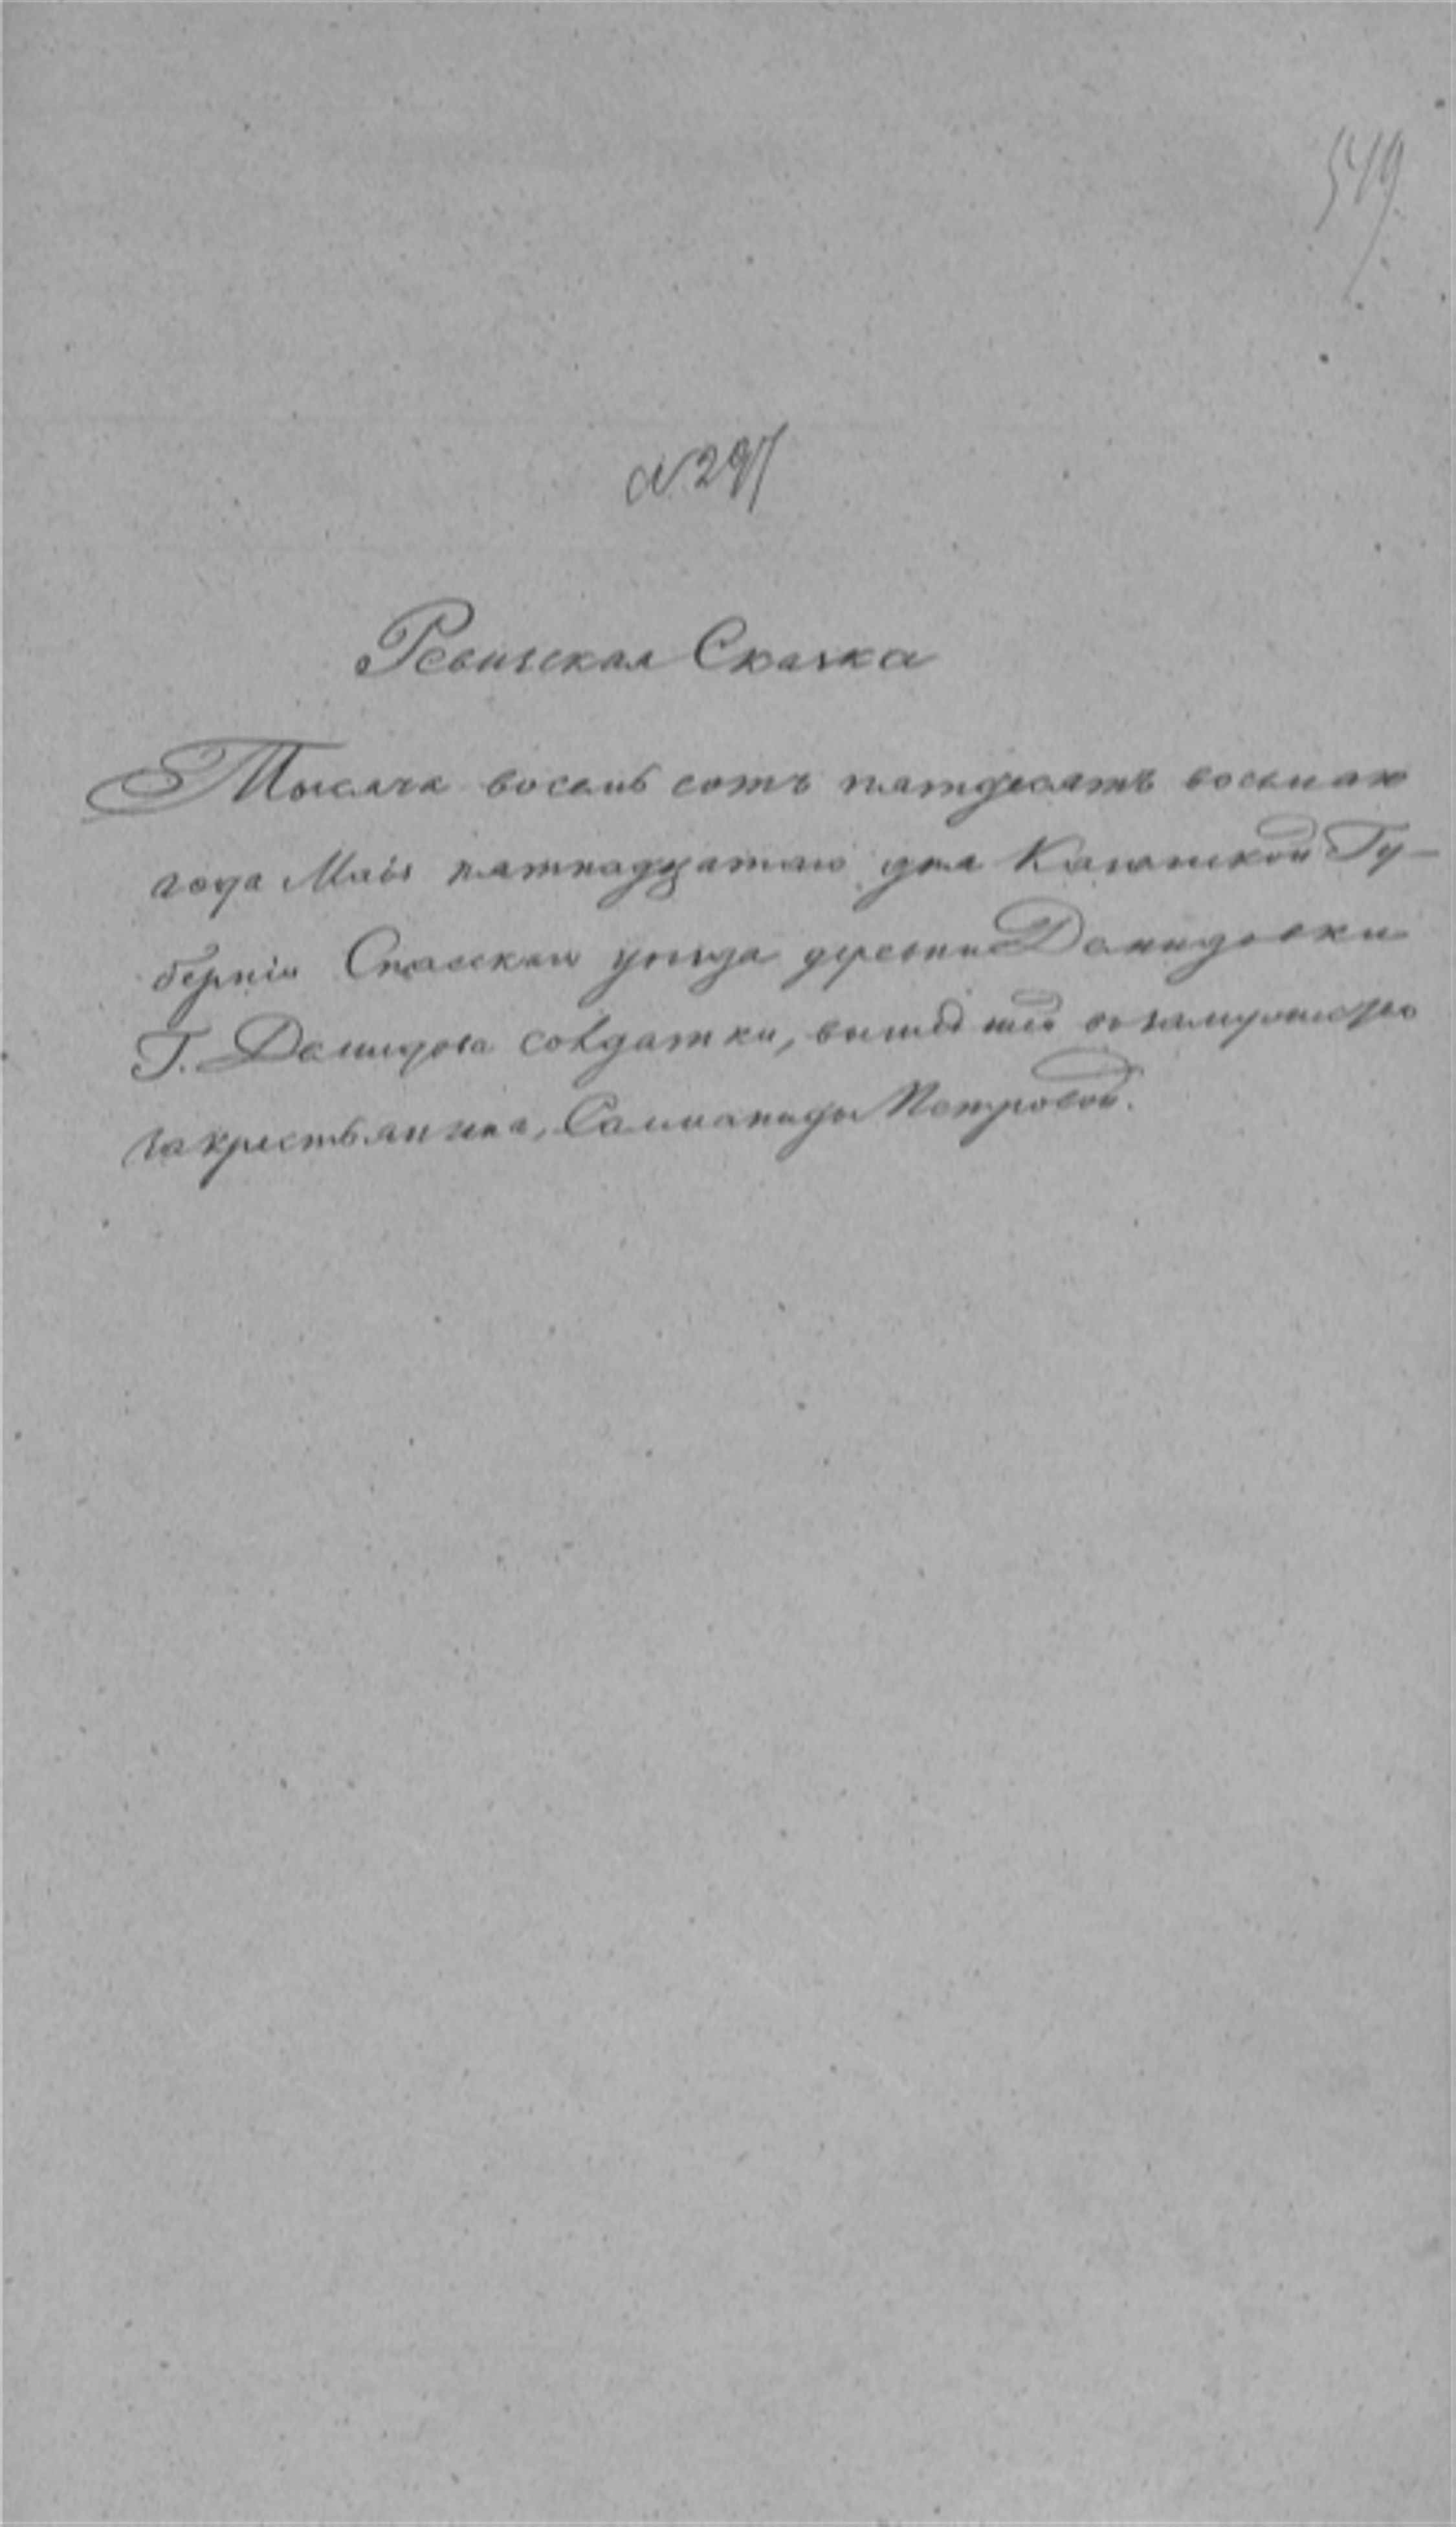 549
№ 297
Ревизская Сказка
Тысяча восемь сотъ пятдесятъ восьмаго
года Маія пятнадцатаго дня Казанской Гу-
берніи Спасскаго уезда деревни Демидовки
Г. Демидова солдатки, вышедшей въ замужество
за крестьянина, Саломаниды Петровой.